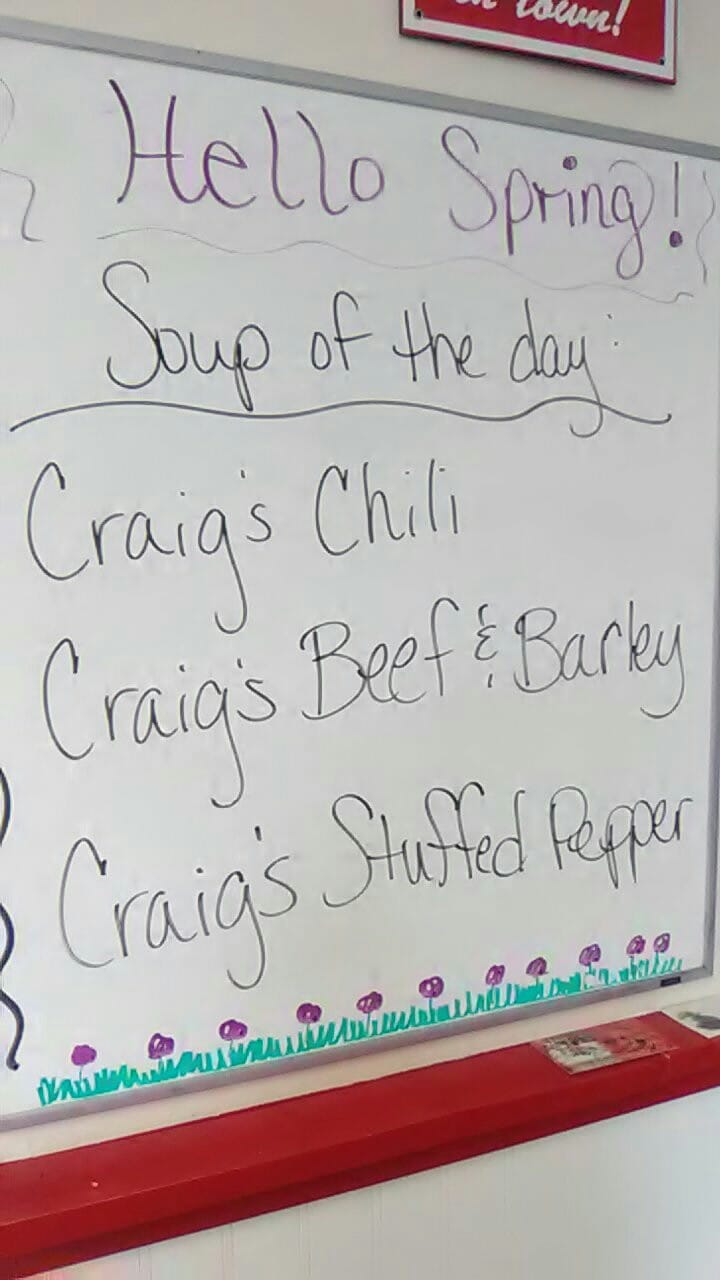 town!
Hello Spring!
Soup of the day:
Craig's Chili
Craig's Beef & Barley
Craig's Stuffed Pepper